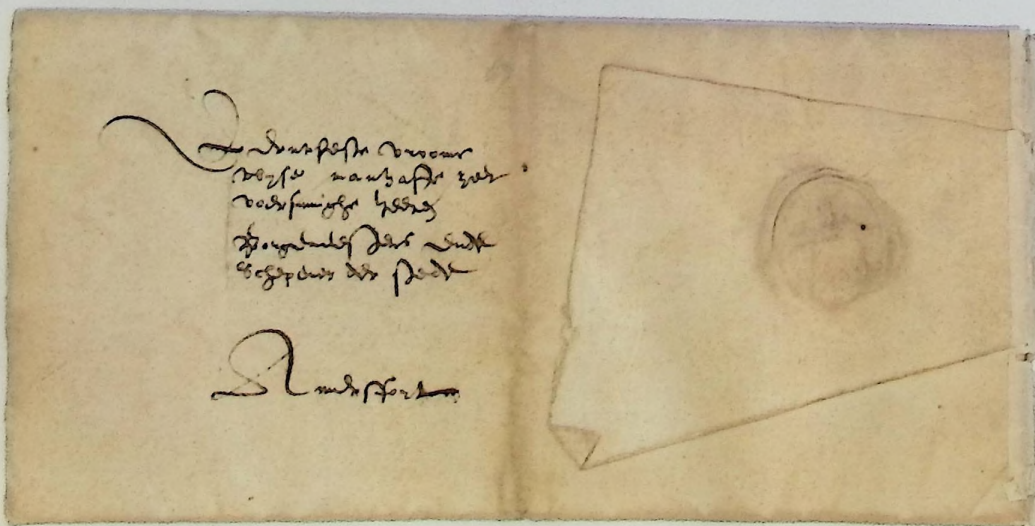 Erentfeste vroome
wyse manhafte zeer
voersinnighe heeren
Borgemeesters ende
Schepenen der stede
Amersfort